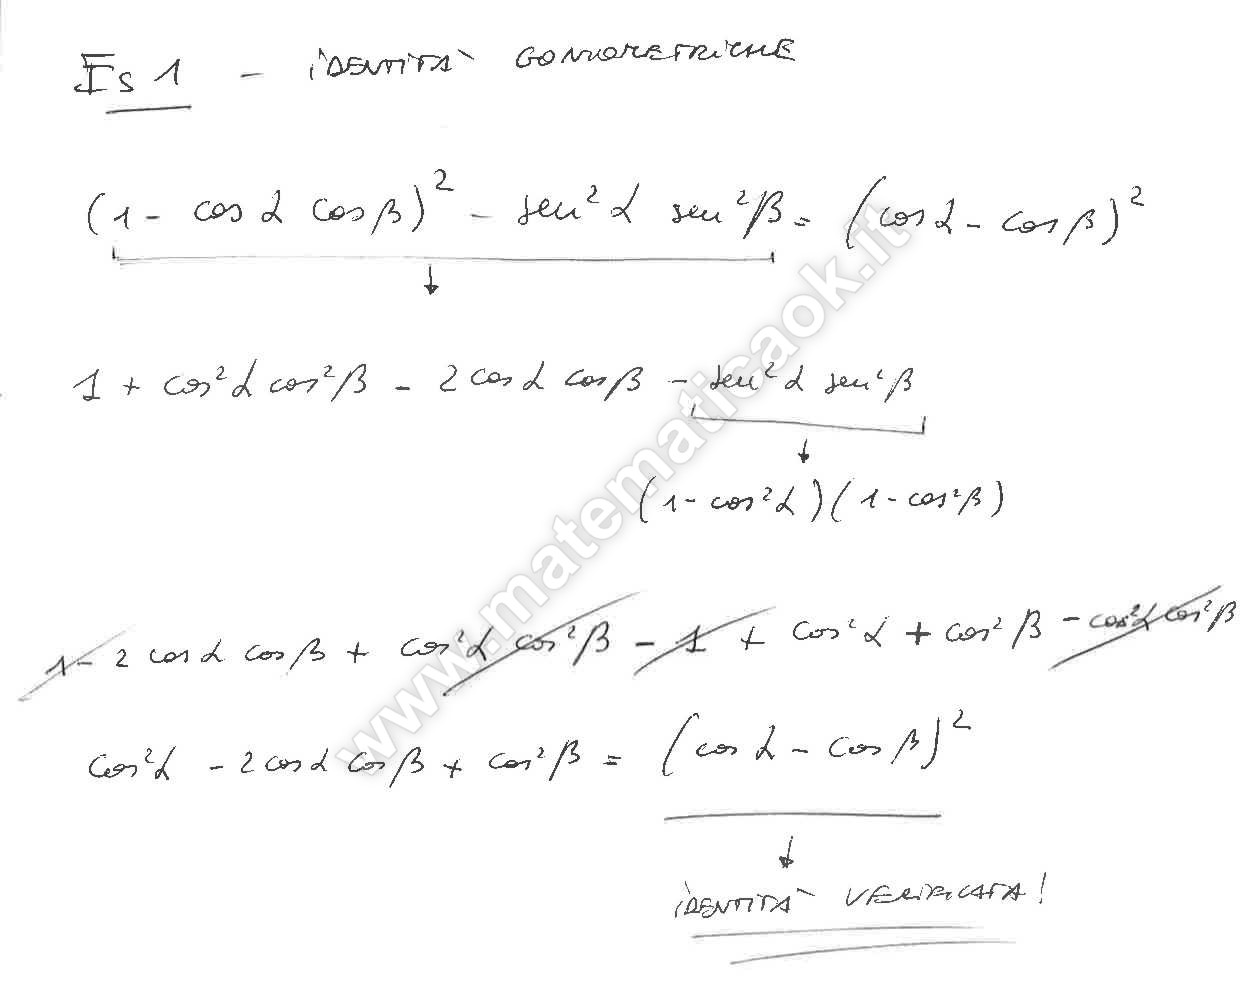 Es 1 - IDENTITÀ GONIOMETRICHE
(1 - cos α cos β)² - sen² α sen² β = (cos α - cos β)²
↓
1 + cos² α cos² β - 2 cos α cos β - sen² α sen² β
↓
(1 - cos² α)(1 - cos² β)
1 - 2 cos α cos β + cos² α cos² β - 1 + cos² α + cos² β - cos² α cos² β
cos² α - 2 cos α cos β + cos² β = (cos α - cos β)²
↓
IDENTITÀ VERIFICATA!
www.matematicaok.it